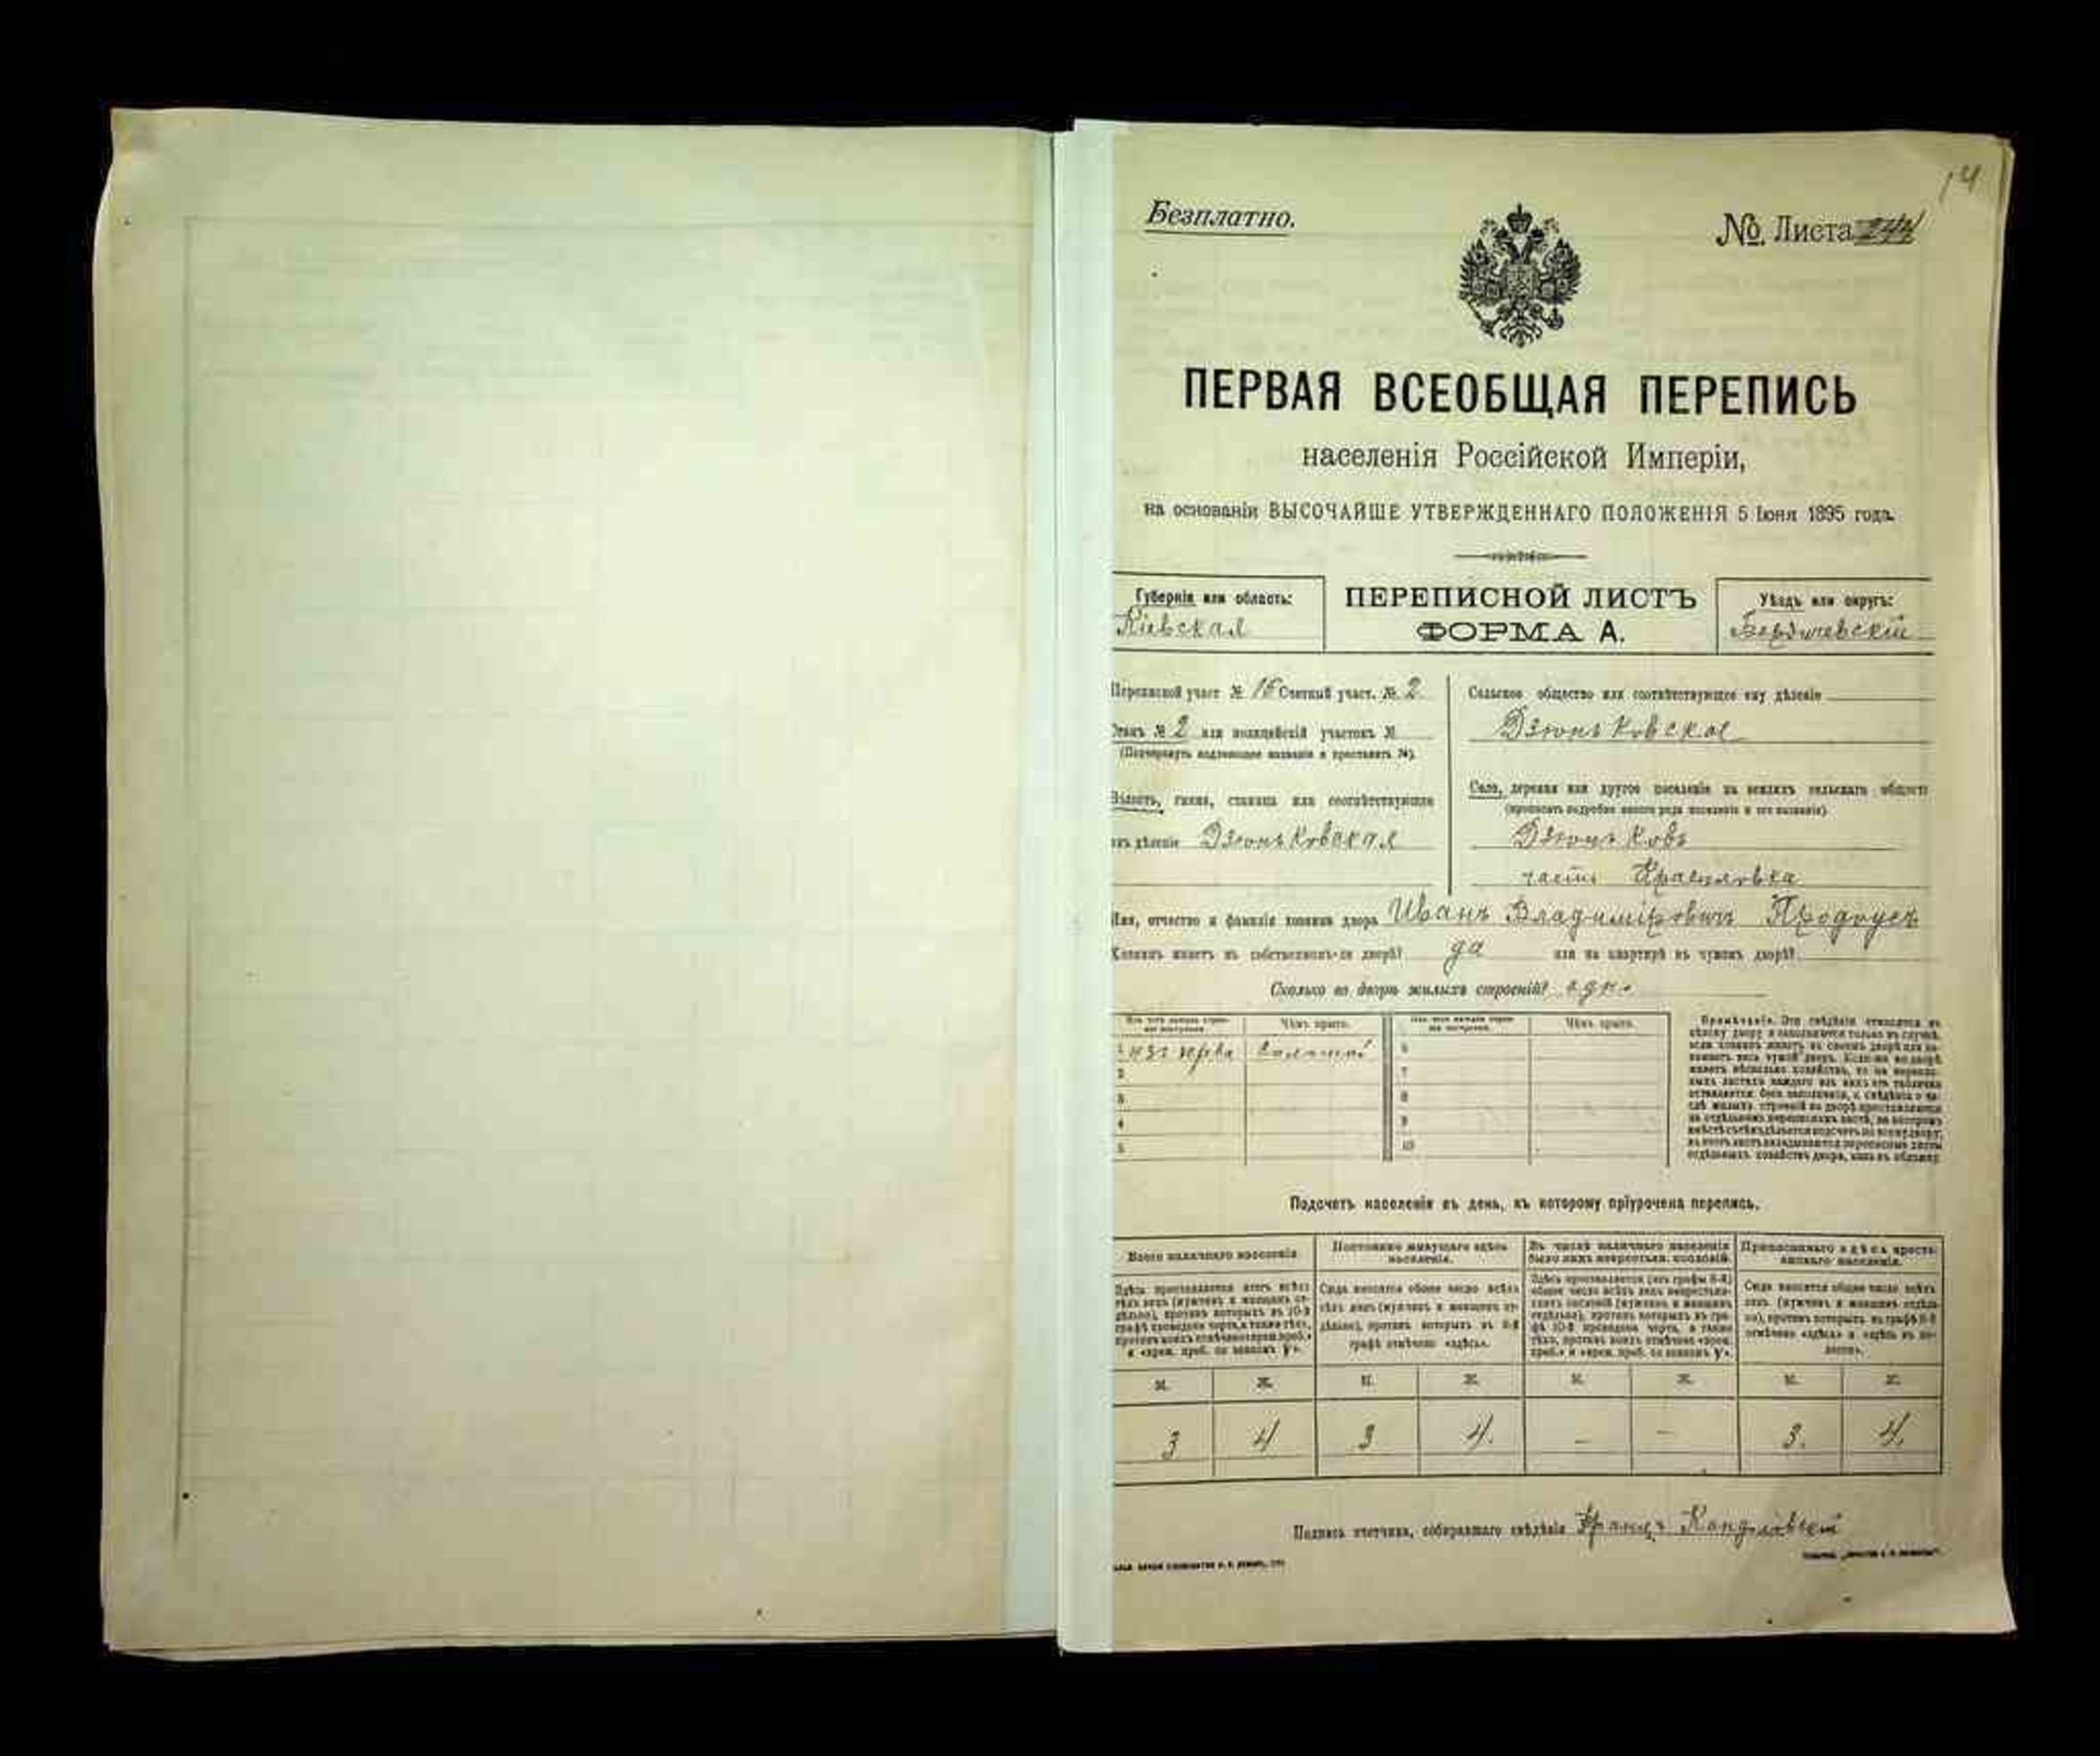 14
Безплатно.
№ Листа 244
ПЕРВАЯ ВСЕОБЩАЯ ПЕРЕПИСЬ
населенія Россійской Имперіи,
на основаніи ВЫСОЧАЙШЕ УТВЕРЖДЕННАГО ПОЛОЖЕНІЯ 5 Іюня 1895 года.
Губернія или область:
Кіевская
ПЕРЕПИСНОЙ ЛИСТЪ
ФОРМА А.
Уѣздъ или округъ:
Бердичевскій
Переписной участ. № 15 Счетный участ. № 2
Станъ № 2 или полицейскій участокъ №
(Подчеркнуть надлежащее названіе и проставить №).
Волость, гмина, станица или соотвѣтствующее
имъ дѣленіе Дзюньковская
Сельское общество или соотвѣтствующее ему дѣленіе
Дзюньковское
Село, деревня или другое поселеніе на земляхъ сельскаго общест
(прописать подробно какого рода поселеніе и его названіе)
Дзюньковъ
часть
Имя, отчество и фамилія хозяина двора Иванъ Владиміровичъ Продоусъ
Хозяинъ живетъ въ собственномъ-ли дворѣ? да или на квартирѣ въ чужомъ дворѣ?
Сколько во дворѣ жилыхъ строеній? одно
Изъ чего каждое строе-
ніе построено.
Чѣмъ крыто.
Изъ чего каждое строе-
ніе построено.
Чѣмъ крыто.
1 изъ дерева соломой 6
2 7
3 8
4 9
5 10
Примѣчаніе. Эти свѣдѣнія относятся къ
цѣлому двору и заполняются только въ случаѣ,
если хозяинъ живетъ въ своемъ дворѣ или за-
нимаетъ весь чужой дворъ. Если-же во дворѣ
живетъ нѣсколько хозяйствъ, то на перепис-
ныхъ листахъ каждаго изъ нихъ эта табличка
оставляется безъ заполненія, а свѣдѣнія о чи-
слѣ жилыхъ строеній во дворѣ проставляются
на отдѣльномъ переписномъ листѣ, на которомъ
отдѣльныхъ хозяйствъ двора, какъ въ обложку.
Подсчетъ населенія въ день, къ которому пріурочена перепись.
Всего наличнаго населенія
Постоянно живущаго здѣсь
населенія.
Въ числѣ наличнаго населенія
было лицъ некрестьян. сословій.
Приписаннаго здѣсь кресть-
янскаго населенія.
Здѣсь проставляется итогъ всѣхъ
тѣхъ лицъ (мужчинъ и женщинъ от-
дѣльно), противъ которыхъ въ 10-й
графѣ проведена черта, а также тѣхъ,
противъ коихъ отмѣчено «врем. преб.»
и «врем. преб. со знакомъ V».
Сюда вносится общее число всѣхъ
тѣхъ лицъ (мужчинъ и женщинъ от-
дѣльно), противъ которыхъ въ 9-й
графѣ отмѣчено «здѣсь».
Здѣсь проставляется (изъ графы 8-й)
общее число всѣхъ лицъ некрестьян-
скихъ сословій (мужчинъ и женщинъ
отдѣльно), противъ которыхъ въ гра-
фѣ 10-й проведена черта, а также
тѣхъ, противъ коихъ отмѣчено «врем.
преб.» и «врем. преб. со знакомъ V».
Сюда вносится общее число всѣхъ
лицъ (мужчинъ и женщинъ отдѣль-
но), противъ которыхъ въ графѣ 8-й
отмѣчено «здѣсь» и «здѣсь въ во-
лости».
М. Ж. М. Ж. М. Ж. М. Ж.
3 4 3 4. – – 3. 4.
Подпись счетчика, собиравшаго свѣдѣнія Францъ